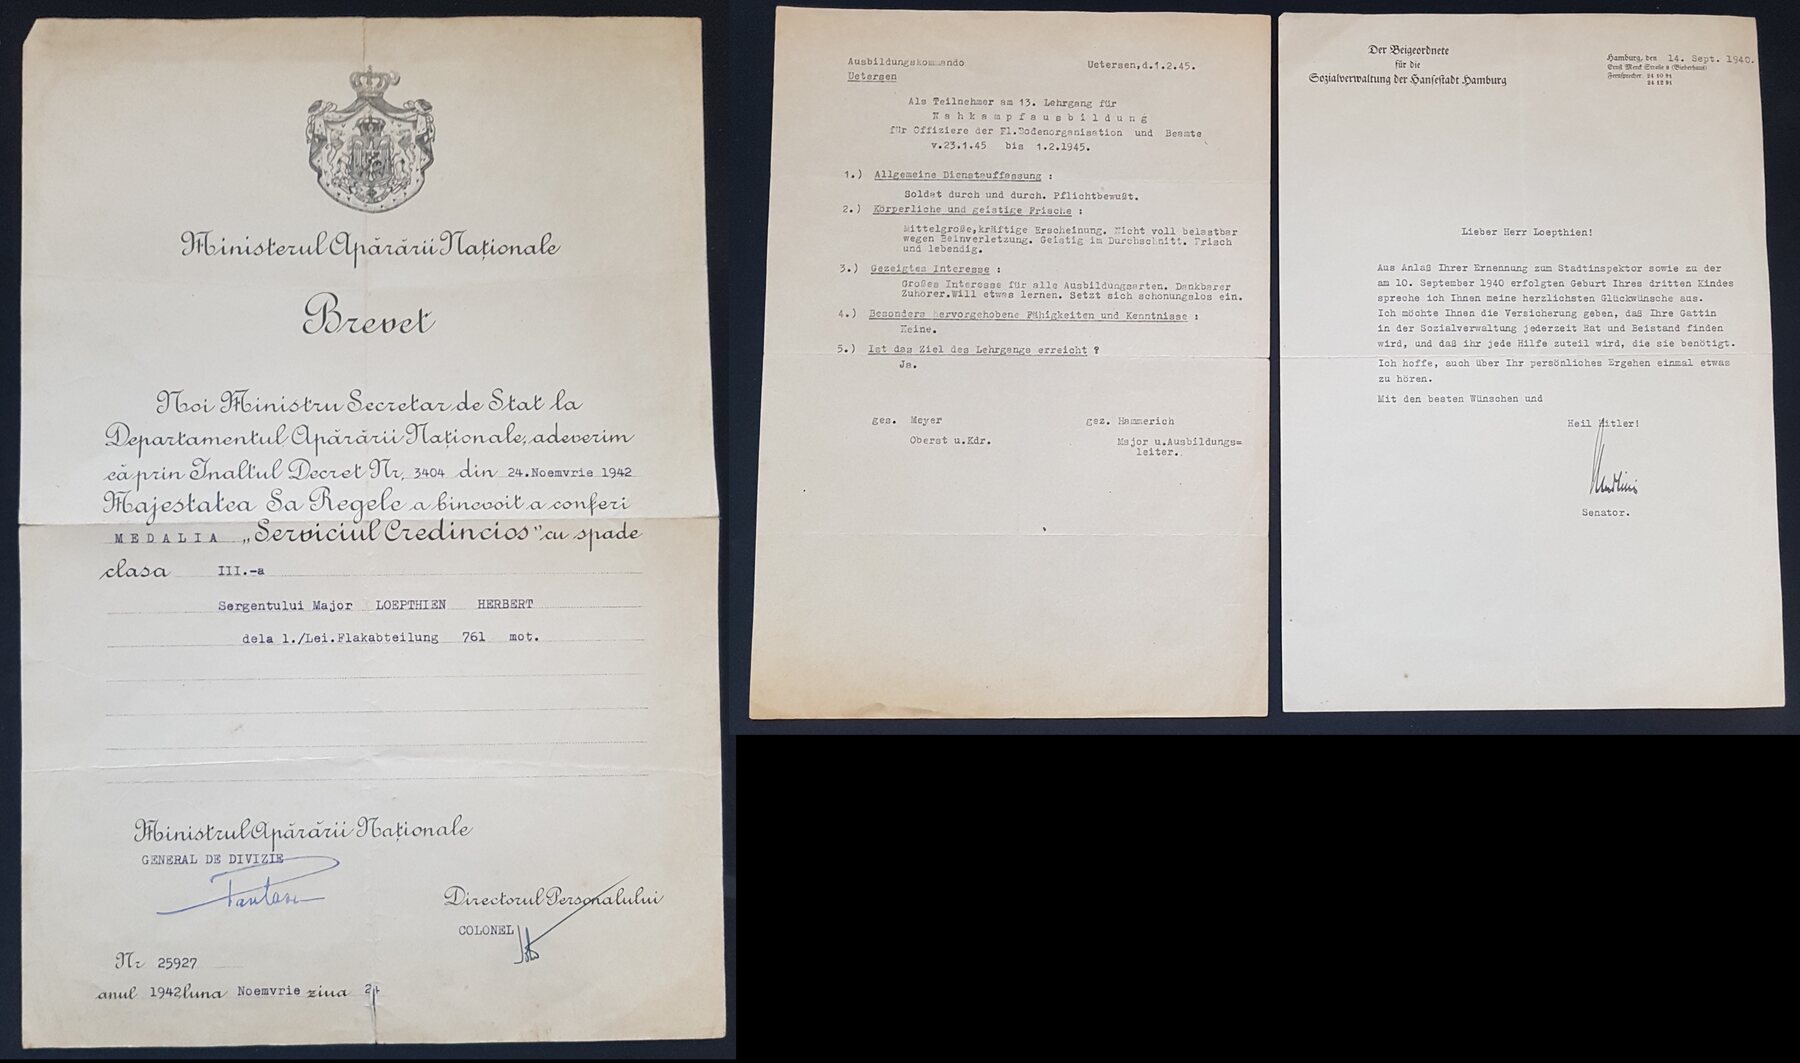 Ministerul Apărării Naționale
Brevet
Noi Ministru Secretar de Stat la
Departamentul Apărării Naționale, adeverim
că prin Inaltul Decret Nr. 3404 din 24.Noemvrie 1942
Majestatea Sa Regele a binevoit a conferi
MEDALIA „Serviciul Credincios” cu spade
clasa III.-a
Sergentului Major LOEPTHIEN HERBERT
dela 1./Lei.Flakabteilung 761 mot.
Ministrul Apărării Naționale
GENERAL DE DIVIZIE
Directorul Personalului
COLONEL
Nr 25927
anul 1942 luna Noemvrie ziua
Ausbildungskommando
Uetersen
Uetersen,d.1.2.45.
Als Teilnehmer am 13. Lehrgang für
Nahkampfausbildung
für Offiziere der Fl.Bodenorganisation und Beamte
v.23.1.45 bis 1.2.1945.
1.) Allgemeine Dienstauffassung :
Soldat durch und durch. Pflichtbewußt.
2.) Körperliche und geistige Frische :
Mittelgroße,kräftige Erscheinung. Nicht voll belastbar
wegen Beinverletzung. Geistig im Durchschnitt. Frisch
und lebendig.
3.) Gezeigtes Interesse :
Großes Interesse für alle Ausbildungsarten. Dankbarer
Zuhörer.Will etwas lernen. Setzt sich schonungslos ein.
4.) Besonders hervorgehobene Fähigkeiten und Kenntnisse :
Keine.
5.) Ist das Ziel des Lehrgangs erreicht ?
Ja.
ges. Meyer
Oberst u.Kdr.
gez. Hammerich
Major u.Ausbildungs=
leiter.
Der Beigeordnete
für die
Sozialverwaltung der Hansestadt Hamburg
Hamburg, den 14. Sept. 1940.
Ernst Merck Straße 9 (Bieberhaus)
Fernsprecher: 24 10 91
24 12 91
Lieber Herr Loepthien!
Aus Anlaß Ihrer Ernennung zum Stadtinspektor sowie zu der
am 10. September 1940 erfolgten Geburt Ihres dritten Kindes
spreche ich Ihnen meine herzlichsten Glückwünsche aus.
Ich möchte Ihnen die Versicherung geben, daß Ihre Gattin
in der Sozialverwaltung jederzeit Rat und Beistand finden
wird, und daß ihr jede Hilfe zuteil wird, die sie benötigt.
Ich hoffe, auch über Ihr persönliches Ergehen einmal etwas
zu hören.
Mit den besten Wünschen und
Heil Hitler!
Senator.